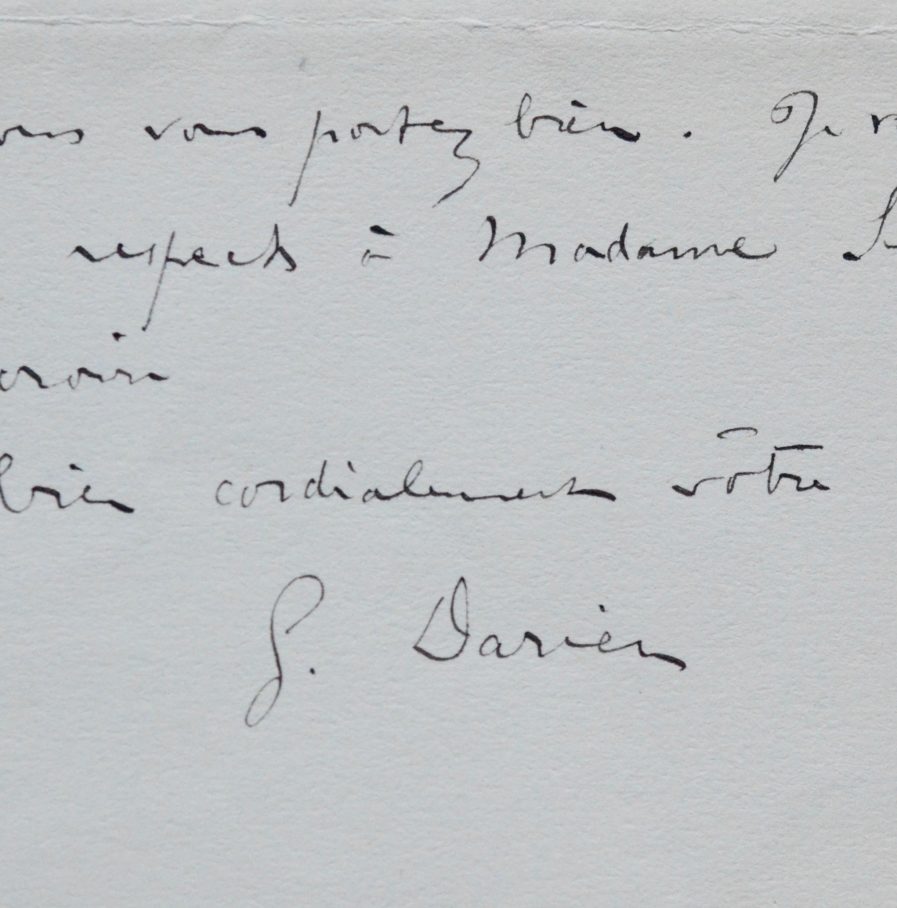 vous portez bien. Je
respects à Madame
croire
bien cordialement vôtre
G. Darien